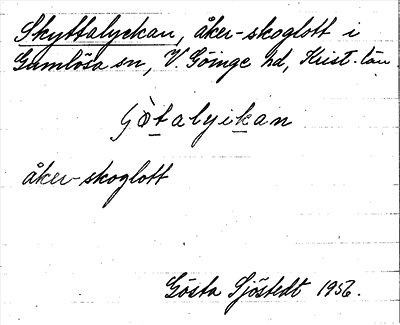 Skyttalyckan, åker-skoglott i
Gumlösa sn, V. Göinge hd, Krist. län
åker-skoglott
Gösta Sjöstedt 1956.